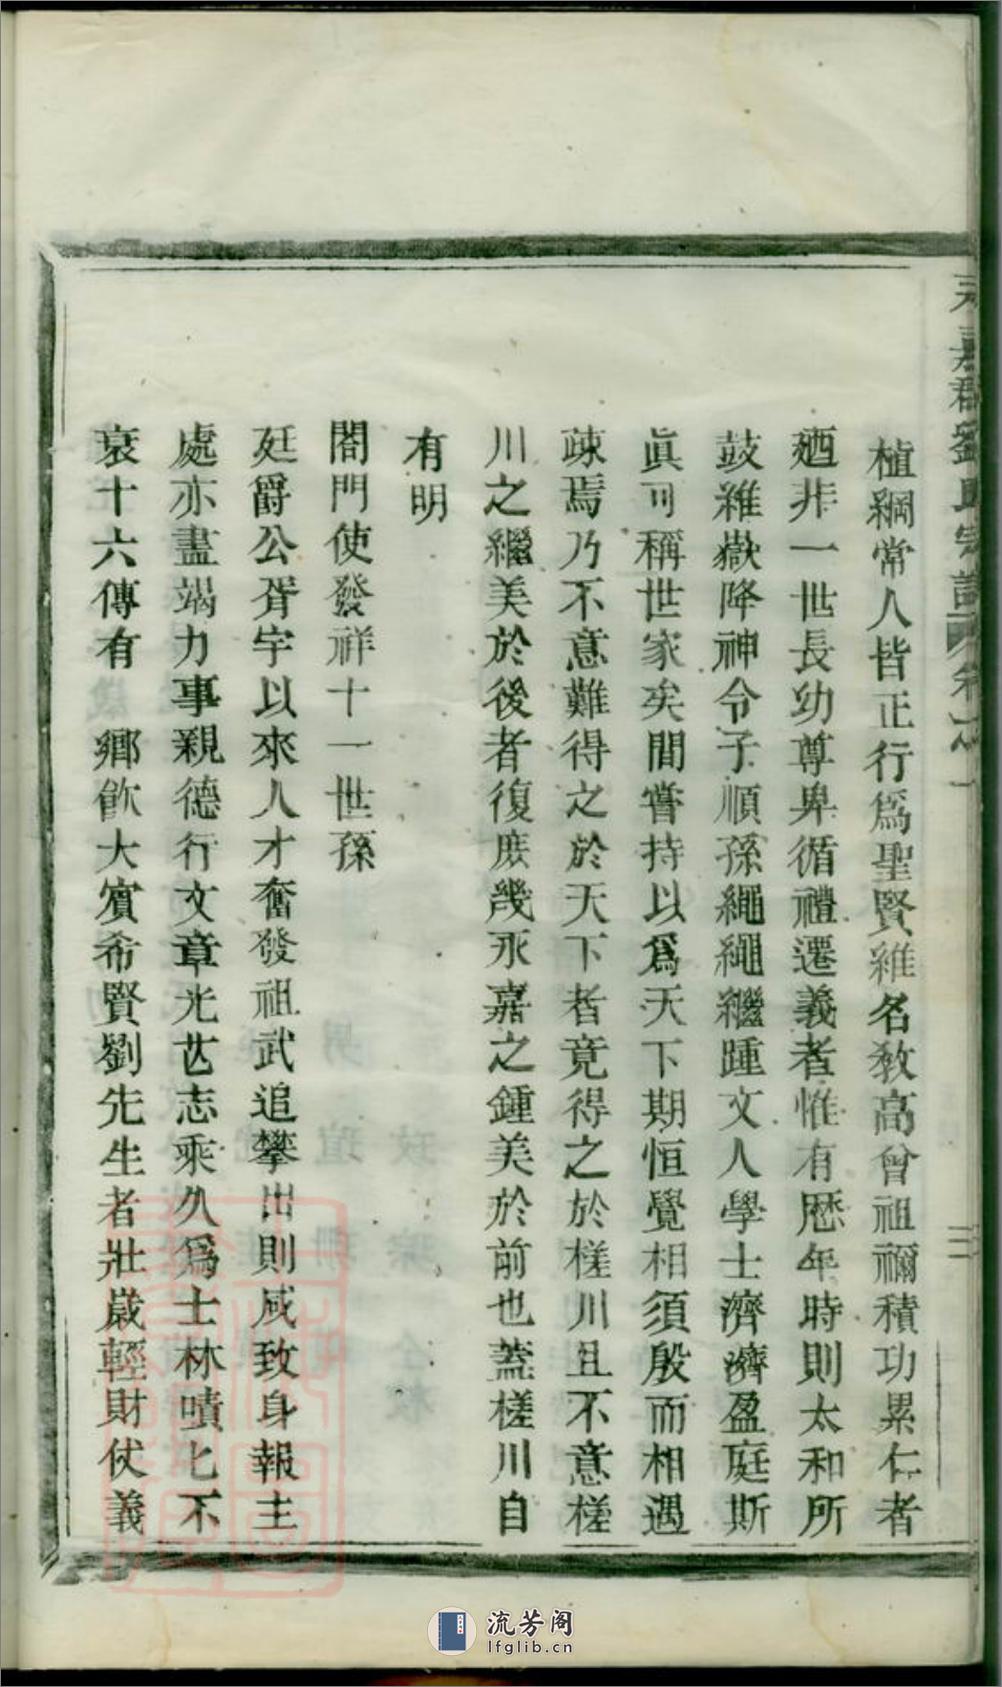 永嘉郡劉氏宗譜 卷之一
植綱常人皆正行爲聖賢維名敎高曾祖禰積功累仁者
廼非一世長幼尊卑循禮遷義者惟有歷年時則太和所
鼓維嶽降神令子順孫繩繩繼踵文人學士濟濟盈庭斯
眞可稱世家矣間嘗持以爲天下期恒覺相須殷而相遇
疎焉乃不意難得之於天下者竟得之於槎川且不意槎
川之繼美於後者復庶幾永嘉之鍾美於前也蓋槎川自
有明
閤門使發祥十一世孫
廷爵公胥宇以來人才奮發祖武追攀出則咸致身報主
處亦盡竭力事親德行文章光芑志乘久爲士林嘖匕不
衰十六傳有 鄉飮大賓希賢劉先生者壯歲輕財伏義
三
流芳阁
lfglib.cn